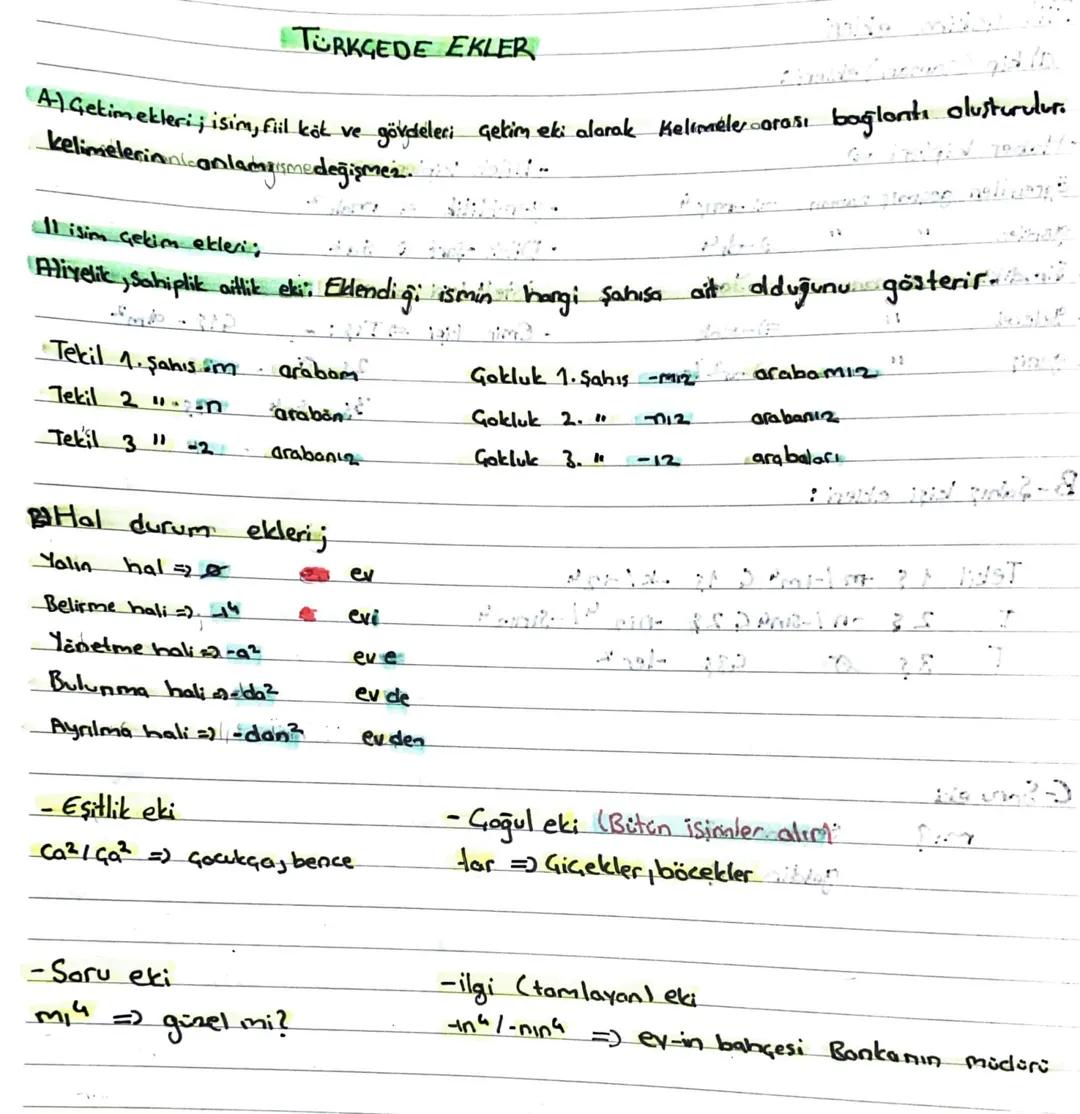 TÜRKÇEDE EKLER
A-) Çekim ekleri; isim, fiil kök ve gövdeleri çekim eki alarak kelimeler arası bağlantı oluşturulur.
kelimelerin anlamı değişmez.
1) isim çekim ekleri;
A) iyelik, Sahiplik aitlik eki: Eklendiği ismin hangi şahısa ait olduğunu gösterir.
Tekil 1. Şahıs -m arabam Çokluk 1. Şahıs -mız arabamız
Tekil 2 " -n araban Çokluk 2. " -nız arabanız
Tekil 3 " -2 arabanız Çokluk 3. " -ız arabaları
B) Hal durum ekleri;
Yalın hal => ø ev
Belirme hali => -ı⁴ evi
Yönetme hali => -a² eve
Bulunma hali => -da² evde
Ayrılma hali => -dan² evden
- Eşitlik eki - Çoğul eki (Bütün isimler alır)
Ca² / Ça² => Çocukça, bence lar => Çiçekler, böcekler
- Soru eki - ilgi (tamlayan) eki
mı⁴ => güzel mi? -ın⁴ / -nın⁴ => ev-in bahçesi Bankanın müdürü